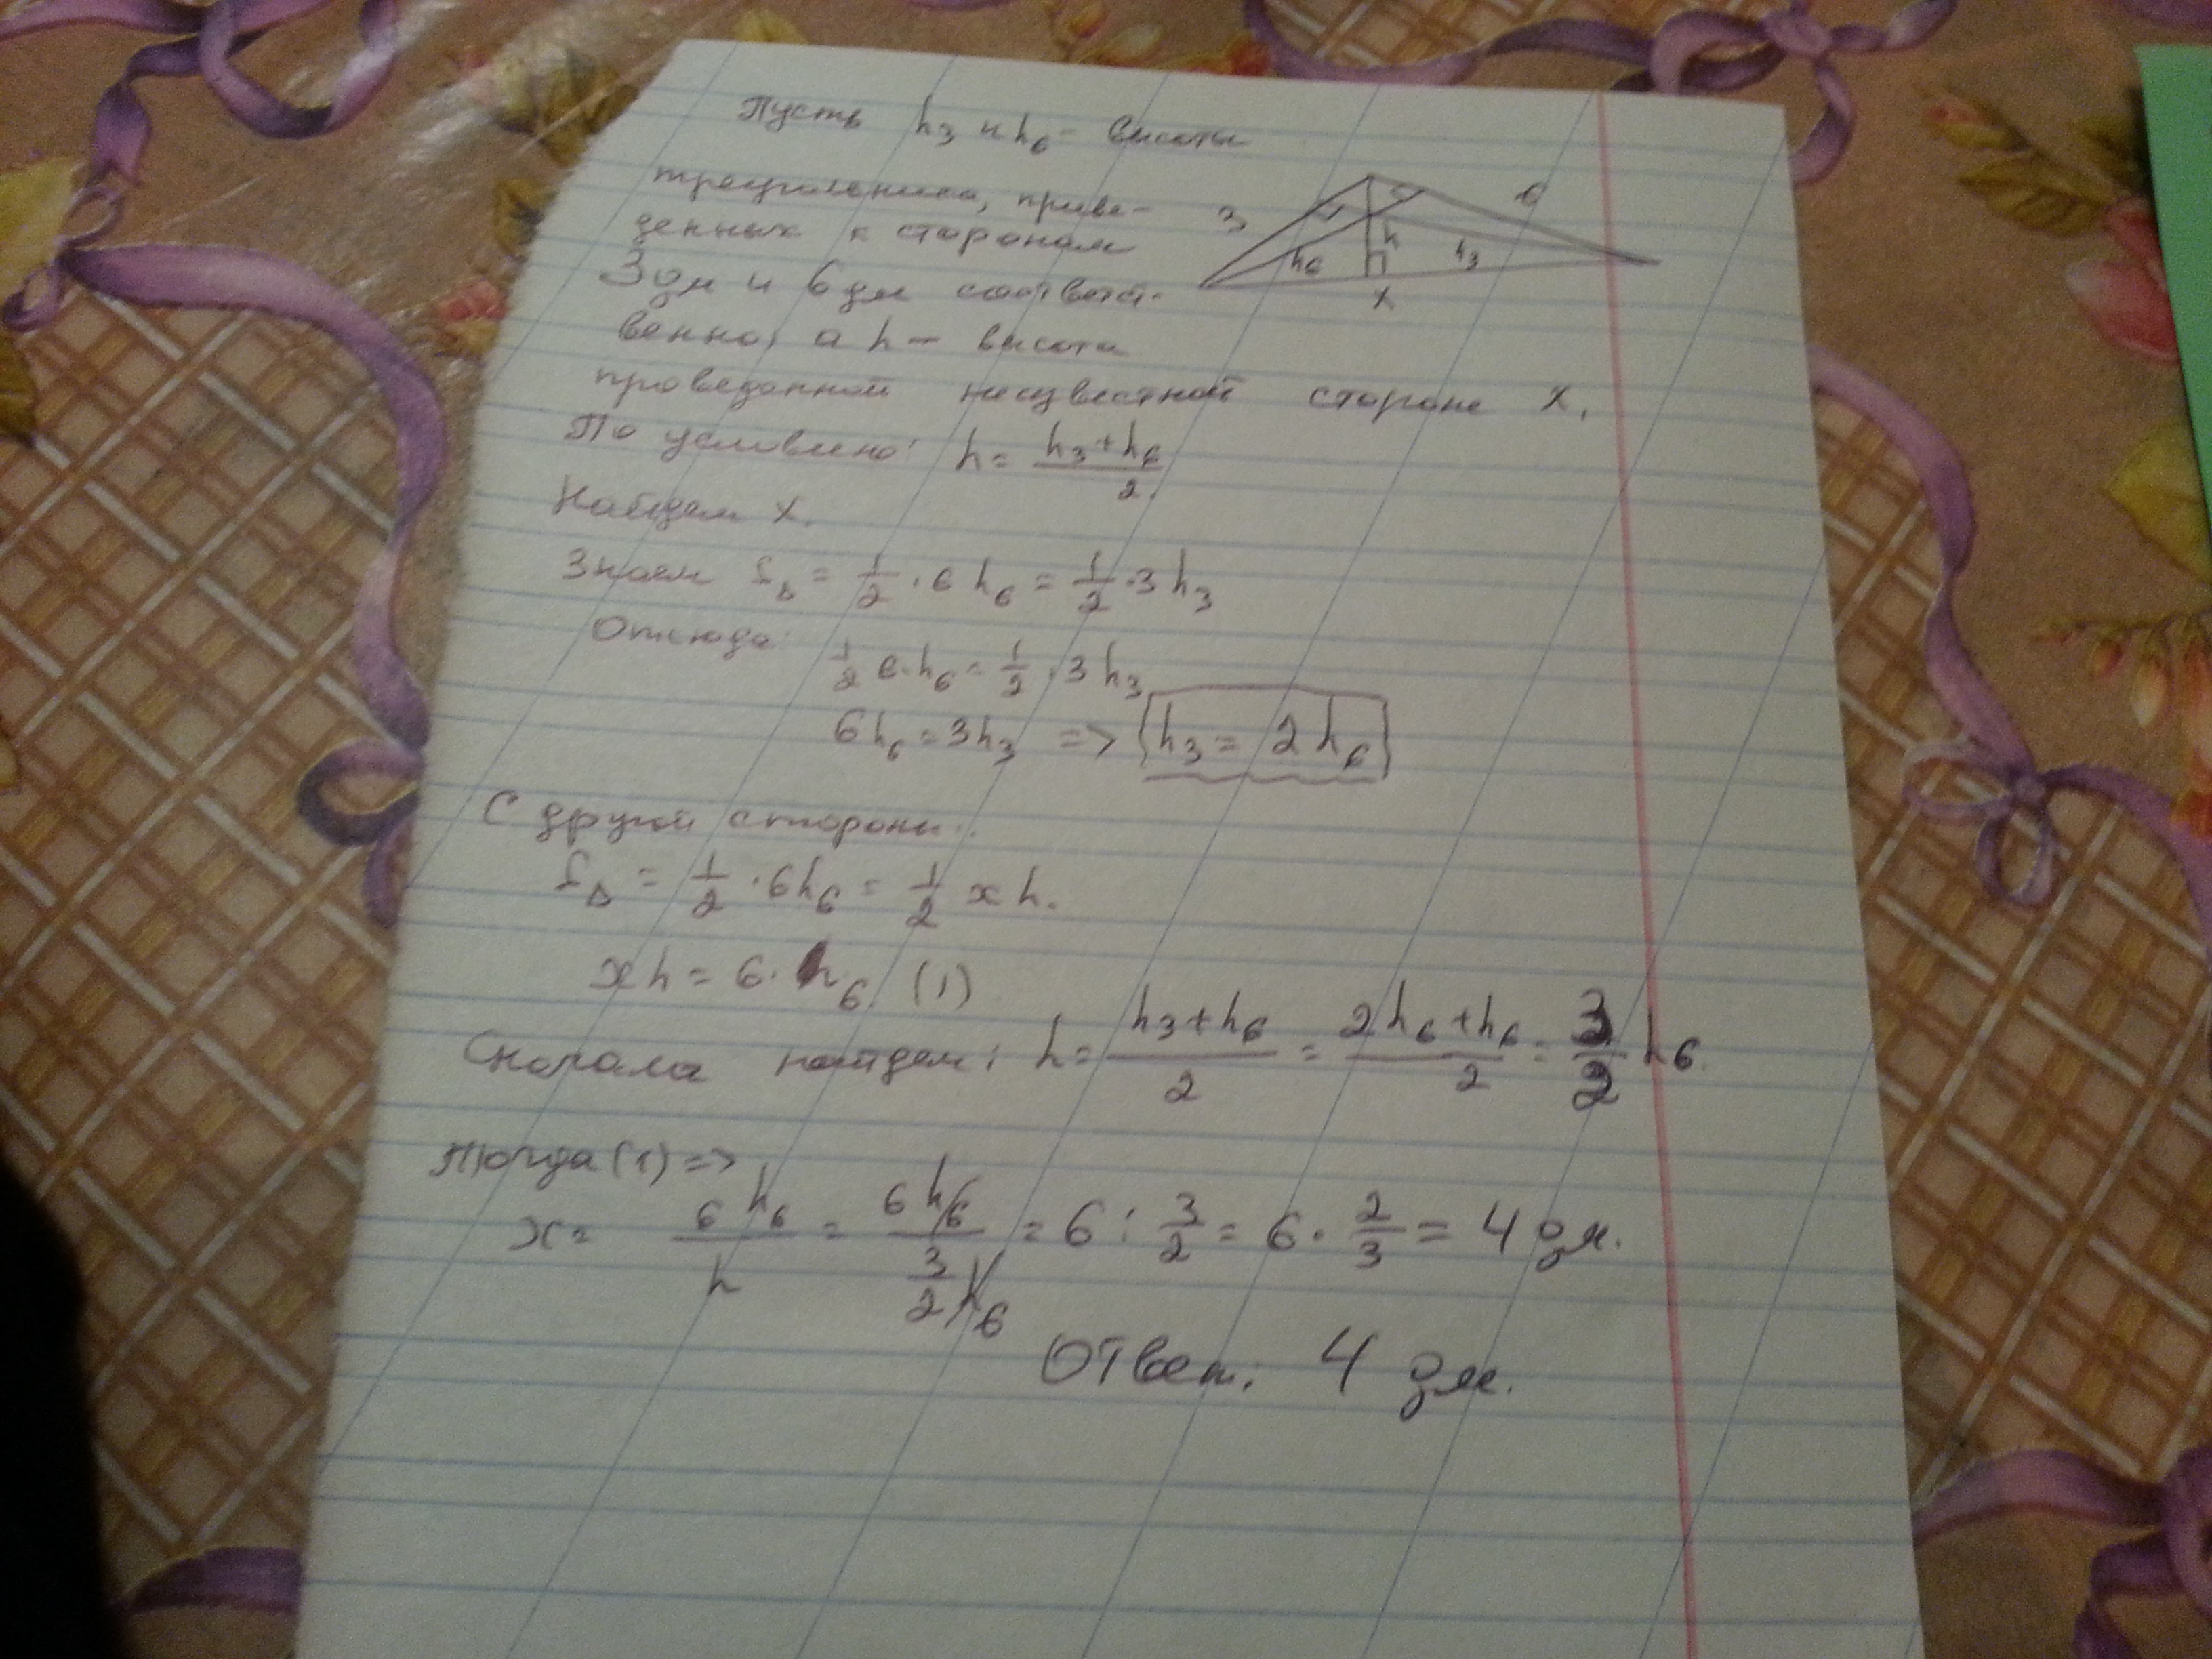 Пусть h₃ и h₆ - высоты
треугольника, приве-
денных к сторонам
3 дм и 6 дм соответст-
венно, а h — высота
проведенной неизвестной стороне x.
3
6
h₆
h
h₃
x
По условию: h = (h₃ + h₆)/2.
Найдем x.
Знаем S△ = 1/2 · 6 h₆ = 1/2 · 3 h₃
Отсюда:
1/2 6 · h₆ = 1/2 · 3 h₃
6h₆ = 3h₃ => h₃ = 2h₆
С другой стороны..
S△ = 1/2 · 6h₆ = 1/2 x h.
x h = 6 · h₆. (1)
Сначала найдем: h = (h₃ + h₆)/2 = (2h₆ + h₆)/2 = 3/2 h₆.
Тогда (1) =>
x = 6h₆/h = 6h₆/(3/2 h₆) = 6 : 3/2 = 6 · 2/3 = 4 дм.
Ответ: 4 дм.